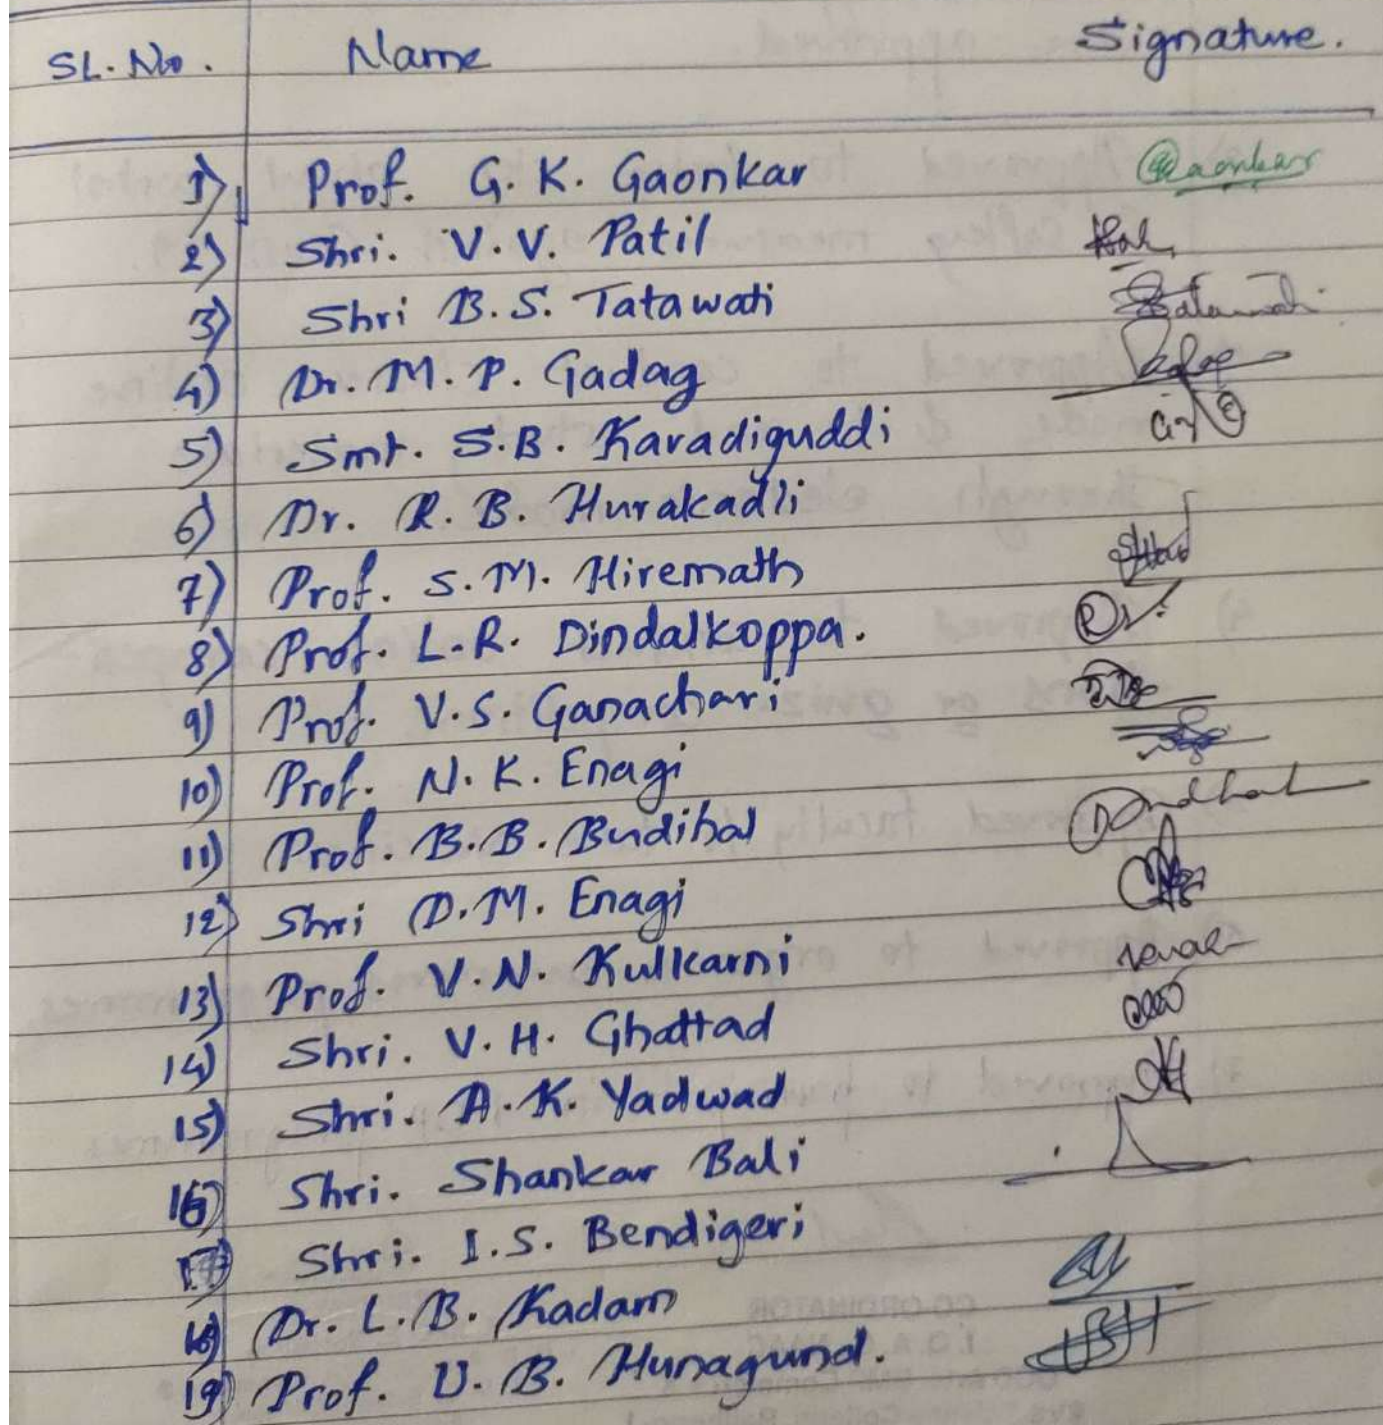 SL. No. Name Signature.
1) Prof. G. K. Gaonkar Gaonkar
2) Shri. V. V. Patil
3) Shri B. S. Tatawati
4) Dr. M. P. Gadag
5) Smt. S.B. Karadiguddi
6) Dr. R. B. Hurakadli
7) Prof. S. M. Hiremath
8) Prof. L.R. Dindalkoppa.
9) Prof. V.S. Ganachari
10) Prof. N. K. Enagi
11) Prof. B. B. Budihal
12) Shri D.M. Enagi
13) Prof. V. N. Kulkarni
14) Shri. V. H. Ghattad
15) Shri. A. K. Yadwad
16) Shri. Shankar Bali
17) Shri. I.S. Bendigeri
18) Dr. L. B. Kadam
19) Prof. U. B. Hunagund.